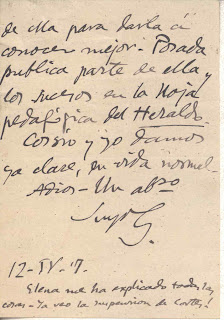 de ella para darla á
conocer mejor. Posada
publica parte de ella y
los sucesos en la Hoja
pedagógica del Heraldo.
Cossío y yo damos
ya clase, en vida normal.
Adios - Un abzo
12-IV-17.
Elena me ha explicado todas las
cosas - Ya veo la suspension de Cortes.